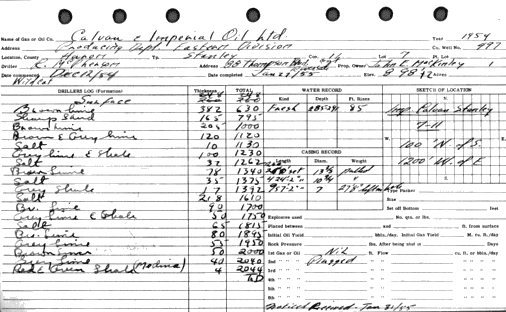 Name of Gas or Oil Co. Calvan & Imperial Oil Ltd Year 1954
Address Producing Dept. Eastern Division Co. Well No. 497
Location, County Huron Tp. Stanley Con. Lot 7 Pt. Lot
Driller E. McPherson Address Prop. Owner John E. McKinley 1
Date commenced Dec 12/54 Date completed Jan 29/55 Elev. Acres
Wildcat
DRILLERS LOG (Formation) Thickness TOTAL WATER RECORD SKETCH OF LOCATION
Surface 248 248 Kind Depth Ft. Rises N.
Brown Lime 382 630 Fresh 85 Imp. Calvan Stanley
Sharp Sand 165 795 7-11
Brown Lime 205 1000
Brown & Grey Lime 120 1120 W. 100' N. of S. E.
Salt 10 1130 1200' W. of E.
Grey Lime & Shale 100 1230 CASING RECORD
Salt 32 1262 Size Diam. Weight
Brown Lime 78 1340 13 3/8 pulled S.
Salt 35 1375 10 3/4
Grey Shale 17 1392 957'-2" 7 Type Packer
Salt 218 1610 Size
Br. Lime 90 1700 Set off Bottom feet
Grey Lime & Shale 50 1750 Explosive used No. qts. or lbs.
Salt 65 1815 Placed between and ft. from surface
Gr. Lime 80 1895 Initial Oil Yield bbls./day. Initial Gas Yield M. cu. ft./day
Grey Lime 55 1950 Rock Pressure lbs. After being shut in Days
Brown Lime 50 2000 1st Gas or Oil Nil ft. Flow cu. ft. or bbls./day
Grey Lime 40 2040 2nd Plugged
Red & Green Shale (Medina) 4 2044 3rd
TD 4th
5th
6th
Notice Received - Jan 31/55